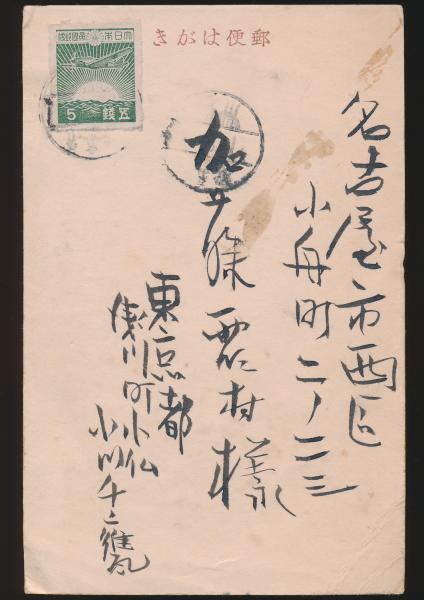 郵便はがき
大日本帝國郵便
五錢 5
名古屋市西區
小舟町二ノ二三
加藤霞村様
東京都
浅川町小仏
小川千甕